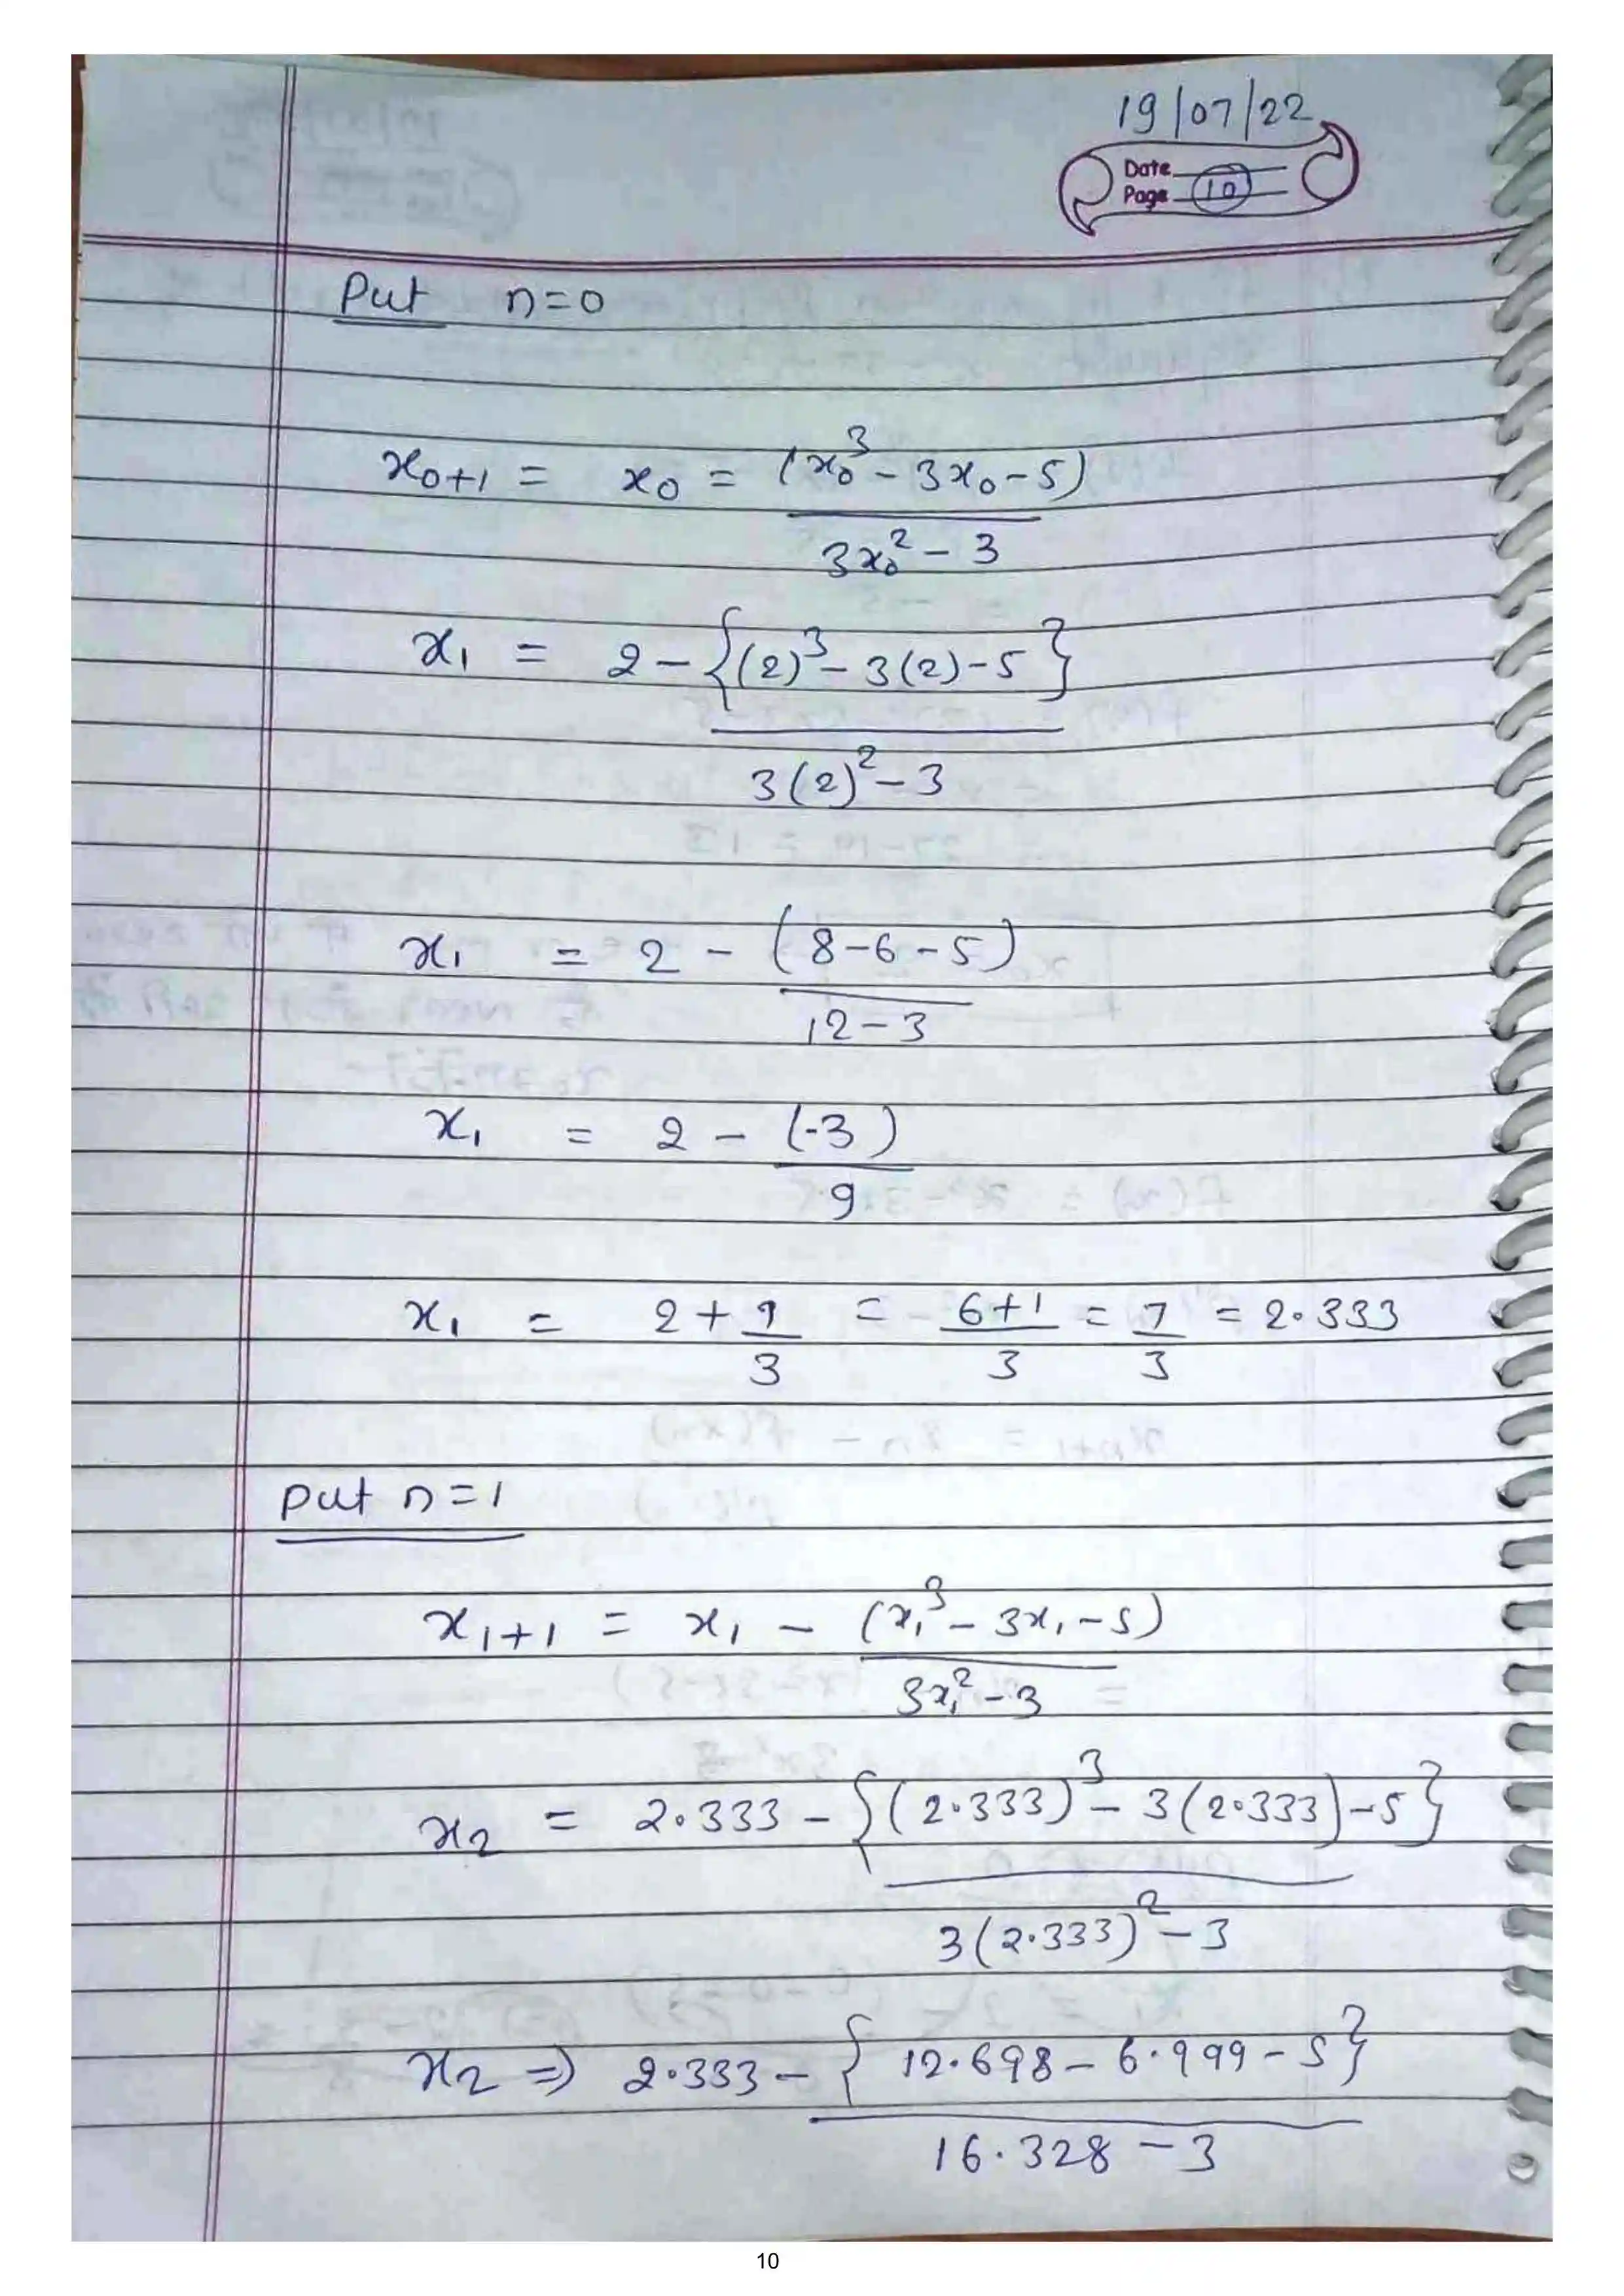 19/07/22
Date
Page 10
Put n=0
x₀₊₁ = x₀ = (x₀³ - 3x₀ - 5)
3x₀² - 3
x₁ = 2 - {(2)³ - 3(2) - 5}
3(2)² - 3
x₁ = 2 - (8-6-5)
12-3
x₁ = 2 - (-3)
9
x₁ = 2 + 1 = 6+1 = 7 = 2.333
3 3 3
put n=1
x₁₊₁ = x₁ - (x₁³ - 3x₁ - 5)
3x₁² - 3
x₂ = 2.333 - {(2.333)³ - 3(2.333) - 5}
3(2.333)² - 3
x₂ ⇒ 2.333 - {12.698 - 6.999 - 5}
16.328 - 3
10